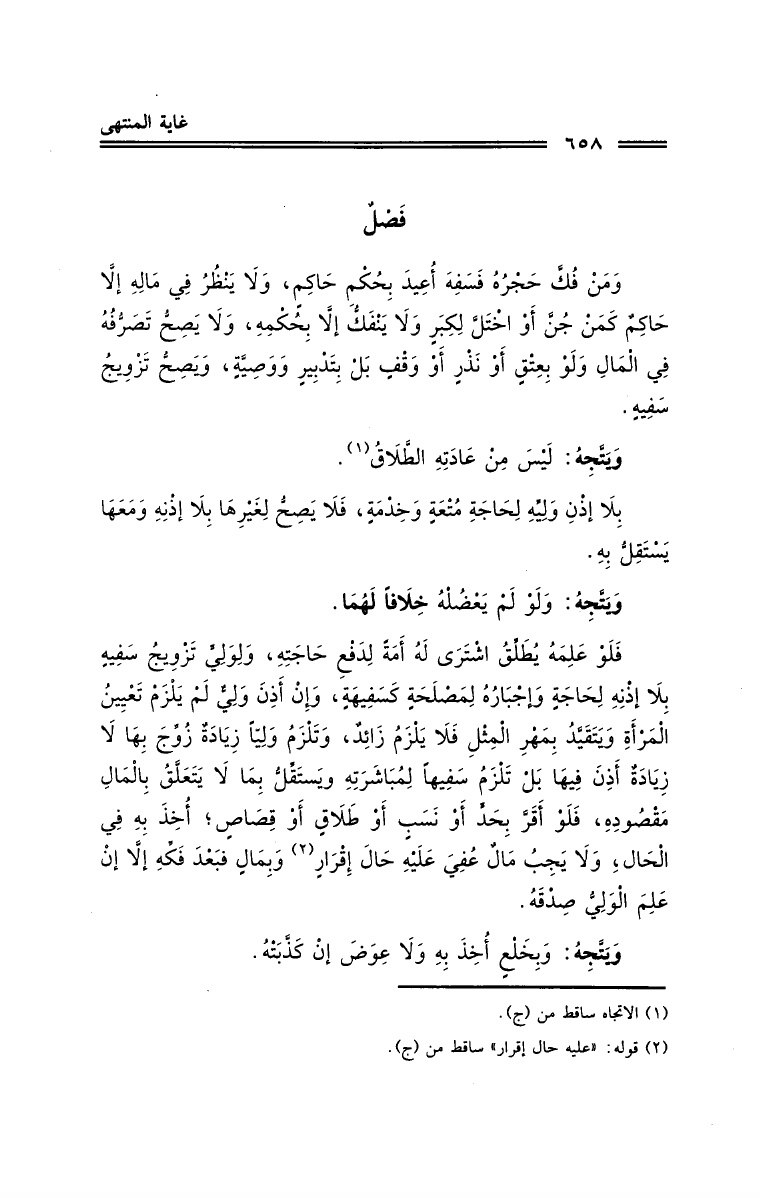 غاية المنتهى
٦٥٨
فَصْلٌ
وَمَنْ فُكَّ حَجْرُهُ فَسَفِهَ أُعِيدَ بِحُكْمِ حَاكِمٍ، وَلَا يَنْظُرُ فِي مَالِهِ إلَّا
حَاكِمٌ كَمَنْ جُنَّ أَوْ اخْتَلَّ لِكِبَرٍ وَلَا يَنْفَكُّ إلَّا بِحُكْمِهِ، وَلَا يَصِحُّ تَصَرُّفُهُ
فِي الْمَالِ وَلَوْ بِعِتْقٍ أَوْ نَذْرٍ أَوْ وَقْفٍ بَلْ بِتَدْبِيرٍ وَوَصِيَّةٍ، وَيَصِحُّ تَزْوِيجُ
سَفِيهٍ.
وَيَتَّجِهُ: لَيْسَ مِنْ عَادَتِهِ الطَّلَاقُ(١).
بِلَا إذْنِ وَلِيِّهِ لِحَاجَةِ مُتْعَةٍ وَخِدْمَةٍ، فَلَا يَصِحُّ لِغَيْرِهَا بِلَا إذْنِهِ وَمَعَهَا
يَسْتَقِلُّ بِهِ.
وَيَتَّجِهُ: وَلَوْ لَمْ يَعْضُلْهُ خِلَافاً لَهُمَا.
فَلَوْ عَلِمَهُ يُطَلِّقُ اشْتَرَى لَهُ أَمَةً لِدَفْعِ حَاجَتِهِ، وَلِوَلِيٍّ تَزْوِيجُ سَفِيهٍ
بِلَا إذْنِهِ لِحَاجَةٍ وَإِجْبَارُهُ لِمَصْلَحَةٍ كَسَفِيهَةٍ، وَإِنْ أَذِنَ وَلِيٌّ لَمْ يَلْزَمْ تَعْيِينُ
الْمَرْأَةِ وَيَتَقَيَّدُ بِمَهْرِ الْمِثْلِ فَلَا يَلْزَمُ زَائِدٌ، وَتَلْزَمُ وَلِيّاً زِيَادَةٌ زُوِّجَ بِهَا لَا
زِيَادَةٌ أَذِنَ فِيهَا بَلْ تَلْزَمُ سَفِيهاً لِمُبَاشَرَتِهِ ويَستَقِلُّ بِمَا لَا يَتَعَلَّقُ بِالْمَالِ
مَقْصُودِهِ، فَلَوْ أَقَرَّ بِحَدٍّ أَوْ نَسَبٍ أَوْ طَلَاقٍ أَوْ قِصَاصٍ؛ أُخِذَ بِهِ فِي
الْحَالِ، وَلَا يَجِبُ مَالٌ عُفِيَ عَلَيْهِ حَالَ إقْرَارٍ(٢) وَبِمَالٍ فبَعْدَ فَكِّهِ إلَّا إنْ
عَلِمَ الْوَلِيُّ صِدْقَهُ.
وَيَتَّجِهُ: وَبِخَلْعٍ أُخِذَ بِهِ وَلَا عِوَضَ إنْ كَذَّبَتْهُ.
(١) الاتجاه ساقط من (ج).
(٢) قوله: «عليه حال إقرار» ساقط من (ج).